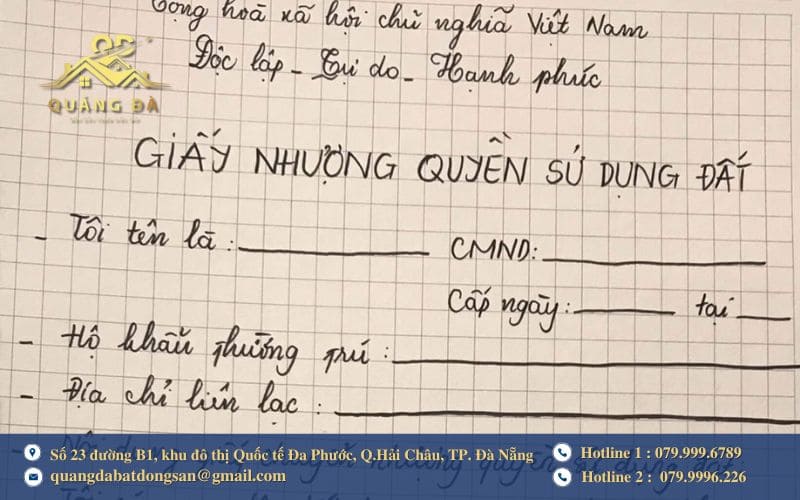 Cộng hoà xã hội chủ nghĩa Việt Nam
Độc lập - Tự do - Hạnh phúc
QUẢNG ĐÀ
GIẤY NHƯỢNG QUYỀN SỬ DỤNG ĐẤT
- Tôi tên là: CMND:
Cấp ngày: tại
- Hộ khẩu thường trú:
- Địa chỉ liên lạc:
chuyển nhượng quyền
Số 23 đường B1, khu đô thị Quốc tế Đa Phước, Q.Hải Châu, TP. Đà Nẵng
Hotline 1 : 079.999.6789
quangdabatdongsan@gmail.com
Hotline 2 : 079.9996.226